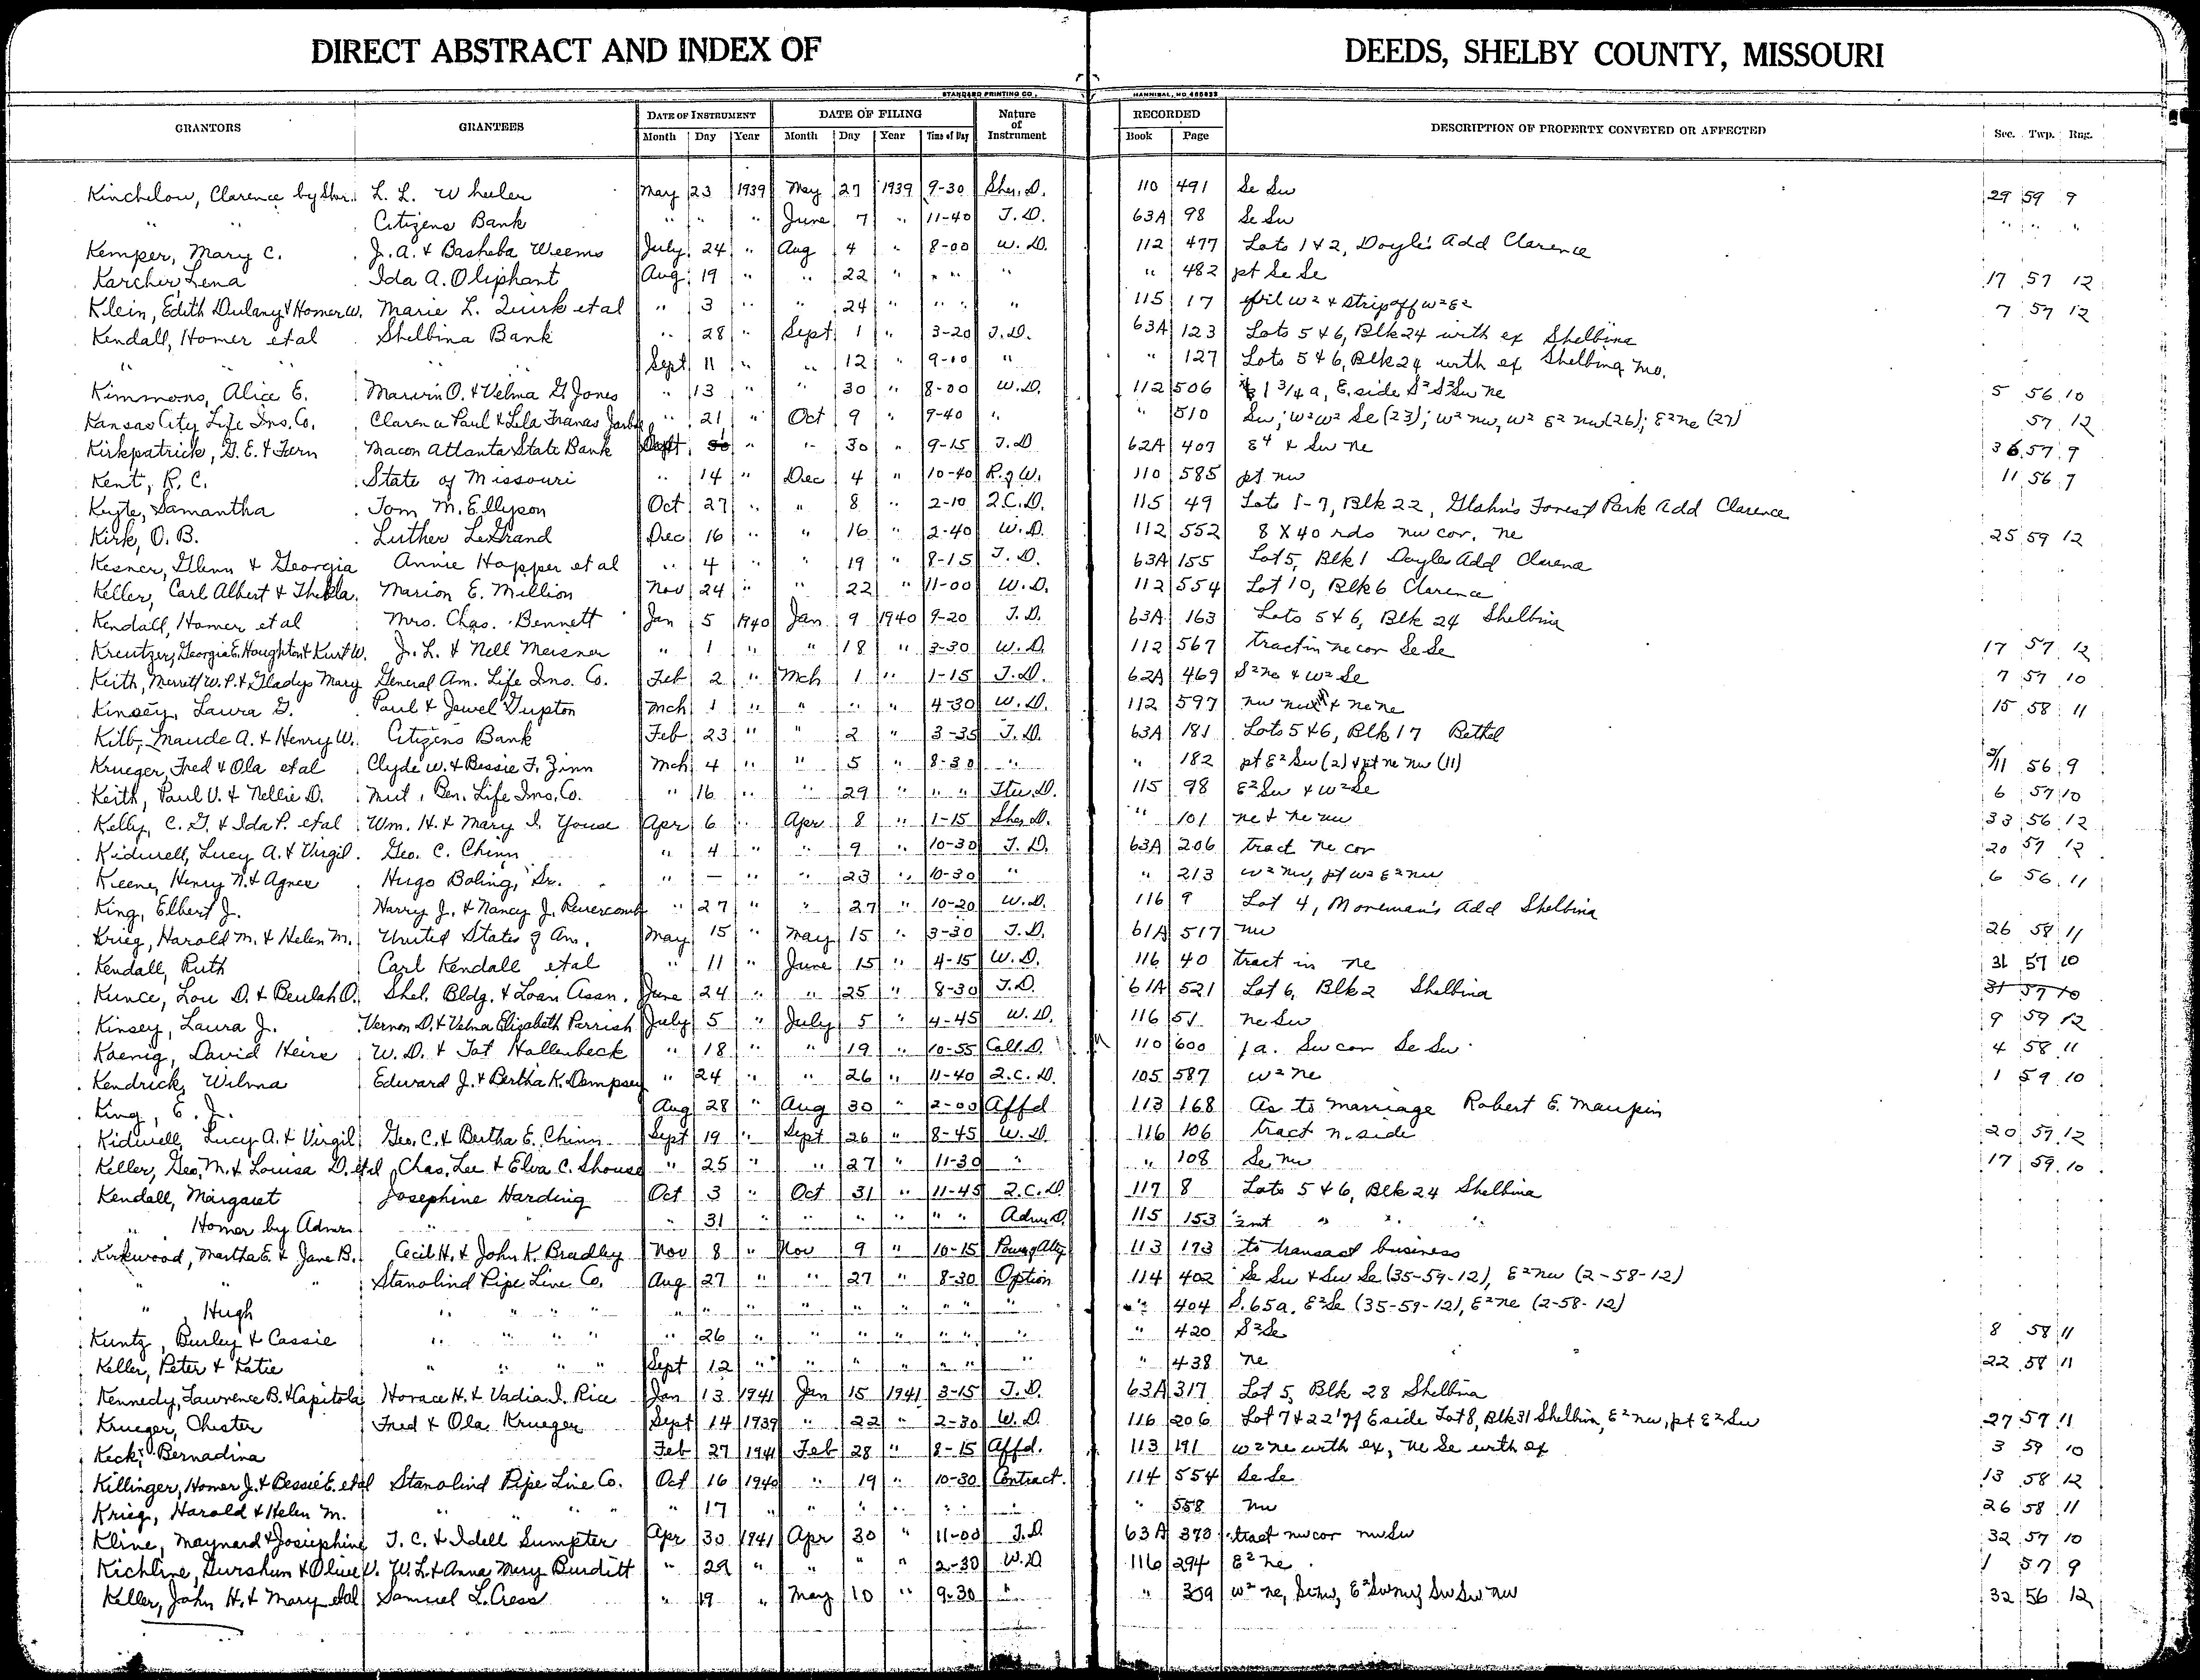 DIRECT ABSTRACT AND INDEX OF DEEDS, SHELBY COUNTY, MISSOURI
STANDARD PRINTING CO., HANNIBAL, MO
GRANTORS GRANTEES DATE OF INSTRUMENT DATE OF FILING Nature of Instrument RECORDED DESCRIPTION OF PROPERTY CONVEYED OR AFFECTED Sec. Twp. Rng.
Month Day Year Month Day Year Time of Day Book Page
Kinchelow, Clarence by Sher. L. L. Wheeler May 23 1939 May 27 1939 9-30 Sher. D. 110 491 Se Sw 29 59 9
" " Citizens Bank " " " June 7 " 11-40 T. D. 63A 98 Se Sw " " "
Kemper, Mary C. J. A. & Basheba Weems July 24 " Aug 4 " 8-00 W. D. 112 477 Lots 1 & 2, Doyle's Add Clarence
Karcher, Lena Ida A. Oliphant Aug 19 " " 22 " " " " " 482 pt Se Se 17 57 12
Klein, Edith Dulany & Homer W. Marie L. Quirk et al " 3 " " 24 " " " " 115 17 W² & strip off W²E² 7 57 12
Kendall, Homer et al Shelbina Bank " 28 " Sept 1 " 3-20 T. D. 63A 123 Lots 5 & 6, Blk 24 with ex Shelbina
" " " Sept 11 " " 12 " 9-00 " " 127 Lots 5 & 6, Blk 24 with ex Shelbina Mo.
Kimmons, Alice E. Marvin O. & Velma G. Jones " 13 " " 30 " 8-00 W. D. 112 506 1 3/4 a, E. side S² S² Sw ne 5 56 10
Kansas City Life Ins. Co. Clarence Paul & Lila Frances " 21 " Oct 9 " 9-40 " " 510 Sw; W² W² Se (23); W² nw, W² E² nw (26); E² ne (27) 57 12
Kirkpatrick, G. E. & Fern Macon Atlanta State Bank Sept 30 " " 30 " 9-15 T. D. 62A 407 E⁴ & Sw ne 36 57 9
Kent, R. C. State of Missouri " 14 " Dec 4 " 10-40 R. of W. 110 585 pt nw 11 56 9
Kyte, Samantha Tom M. Ellyson Oct 27 " " 8 " 2-10 Q. C. D. 115 49 Lots 1-7, Blk 22, Glahn's Forest Park Add Clarence
Kirk, O. B. Luther LeGrand Dec 16 " " 16 " 2-40 W. D. 112 552 8 X 40 rds nw cor. ne 25 59 12
Kesner, Glenn & Georgia Annie Hopper et al " 4 " " 19 " 8-15 T. D. 63A 155 Lot 5, Blk 1 Doyles Add Clarence
Keller, Carl Albert & Thekla Marion E. Million Nov 24 " " 22 " 11-00 W. D. 112 554 Lot 10, Blk 6 Clarence
Kendall, Homer et al Mrs. Chas. Bennett Jan 5 1940 Jan 9 1940 9-20 T. D. 63A 163 Lots 5 & 6, Blk 24 Shelbina
Kreutzer, Georgia E. Houghton & Kurt W. J. L. & Nell Meisner " 1 " " 18 " 3-30 W. D. 112 567 tract in ne cor Se Se 17 57 12
Keith, Merrett W. P. & Gladys Mary General Am. Life Ins. Co. Feb 2 " Mch 1 " 1-15 T. D. 62A 469 S² ne & W² Se 7 57 10
Kinsey, Laura G. Paul & Jewel Gupton Mch 1 " " " " 4-30 W. D. 112 597 nw & ne ne 15 58 11
Kilb, Maude A. & Henry W. Citizens Bank Feb 23 " " 2 " 3-35 T. D. 63A 181 Lots 5 & 6, Blk 17 Bethel
Krueger, Fred & Ola et al Clyde W. & Bessie F. Zinn Mch 4 " " 5 " 8-30 " " 182 pt E² Sw (2) & pt ne nw (11) 2/11 56 9
Keith, Paul V. & Nellie D. Mut. Ben. Life Ins. Co. " 16 " " 29 " " " D. 115 98 E² Sw & W² Se 6 57 10
Kelly, C. G. & Ida P. et al Wm. H. & Mary I. Youse Apr 6 " Apr 8 " 1-15 Sher D. " 101 ne & ne nw 33 56 12
Kidwell, Lucy A. & Virgil Geo. C. Chinn " 4 " " 9 " 10-30 T. D. 63A 206 tract ne cor 20 57 12
Keene, Henry N. & Agnes Hugo Boling, Sr. " — " " 23 " 10-30 " " 213 W² nw, pt W² E² nw 6 56 11
King, Elbert J. Harry J. & Nancy J. Revercomb " 27 " " 27 " 10-20 W. D. 116 9 Lot 4, Moreman's Add Shelbina
Krieg, Harold M. & Helen M. United States of Am. May 15 " May 15 " 3-30 T. D. 61A 517 nw 26 58 11
Kendall, Ruth Carl Kendall et al " 11 " June 15 " 4-15 W. D. 116 40 tract in ne 31 57 10
Kunce, Lou D. & Beulah O. Shel. Bldg. & Loan Assn. June 24 " " 25 " 8-30 T. D. 61A 521 Lot 6, Blk 2 Shelbina 31 57 10
Kinsey, Laura J. Vernon D. & Velma Elizabeth Parrish July 5 " July 5 " 4-45 W. D. 116 51 ne Sw 9 59 12
Koenig, David Heirs W. D. & Tot Hollenbeck " 18 " " 19 " 10-55 Coll. D. 110 600 1 a. Sw cor Se Sw 4 58 11
Kendrick, Wilma Edward J. & Bertha K. Dempsey " 24 " " 26 " 11-40 Q. C. D. 105 587 W² ne 1 59 10
King, E. J. Aug 28 " Aug 30 " 2-00 Affd 113 168 As to marriage Robert E. Maupin
Kidwell, Lucy A. & Virgil Geo. C. & Bertha E. Chinn Sept 19 " Sept 26 " 8-45 W. D. 116 106 tract n. side 20 57 12
Keller, Geo. M. & Louisa D. et al Chas. Lee & Elva C. Shouse " 25 " " 27 " 11-30 " " 108 Se nw 17 59 10
Kendall, Margaret Josephine Harding Oct 3 " Oct 31 " 11-45 Q. C. D. 117 8 Lots 5 & 6, Blk 24 Shelbina
" Homer by Admr " " 31 " " " " " " Adm. D. 115 153 ½ int " " "
Kirkwood, Martha E. & Jane B. Cecil H. & John K. Bradley Nov 8 " Nov 9 " 10-15 Power of Atty 113 173 to transact business
" " " Stanolind Pipe Line Co. Aug 27 " " 27 " 8-30 Option 114 402 Se Sw & Sw Se (35-59-12), E² nw (2-58-12)
" Hugh " " " " " " " " " " " " " " 404 S. 65 a. E² Se (35-59-12), E² ne (2-58-12)
Kuntz, Burley & Cassie " " " " " 26 " " " " " " " " 420 S² Se 8 58 11
Keller, Peter & Katie " " " " Sept 12 " " " " " " " " 438 ne 22 58 11
Kennedy, Lawrence B. & Capitola Horace H. & Vadia I. Rice Jan 13 1941 Jan 15 1941 3-15 T. D. 63A 317 Lot 5, Blk 28 Shelbina
Krueger, Chester Fred & Ola Krueger Sept 14 1939 " 22 " 2-30 W. D. 116 206 Lot 7 & 22' off E side Lot 8, Blk 31 Shelbina, E² nw, pt E² Sw 27 57 11
Keck, Bernadina Feb 27 1941 Feb 28 " 8-15 Affd. 113 191 W² ne with ex, ne Se with ex 3 59 10
Killinger, Homer J. & Bessie E. et al Stanolind Pipe Line Co. Oct 16 1940 " 19 " 10-30 Contract. 114 554 Se Se 13 58 12
Krieg, Harold & Helen M. " " " " 17 " " " " " " " " 558 nw 26 58 11
Kline, Maynard & Josephine T. C. & Idell Sumpter Apr 30 1941 Apr 30 " 11-00 T. D. 63A 373 tract nw cor nw Sw 32 57 10
Kichline, Gurshum & Olive V. W. L. & Anna Mary Burditt " 29 " " " " 2-30 W. D. 116 294 E² ne 1 57 9
Keller, John H. & Mary et al Samuel L. Cress " 19 " May 10 " 9-30 " " 309 W² ne, Se nw, E² Sw nw, Sw Sw nw 32 56 12